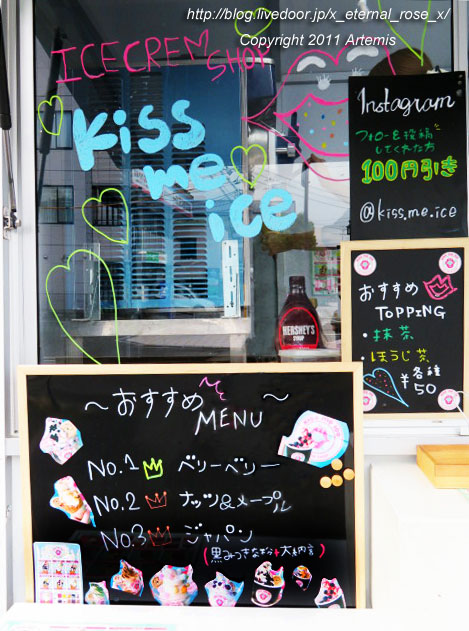 http://blog.livedoor.jp/x_eternal_rose_x/
Copyright 2011 Artemis
ICECREM SHOP
kiss
me
ice
Instagram
フォロー&投稿
してくれた方
100円引き
@kiss.me.ice
おすすめ
TOPPING
・抹茶
・ほうじ茶
各種
¥50
HERSHEY'S
SYRUP
~おすすめ~
MENU
No.1 ベリーベリー
No.2 ナッツ&メープル
No.3 ジャパン
(黒みつきなこ+大納言)